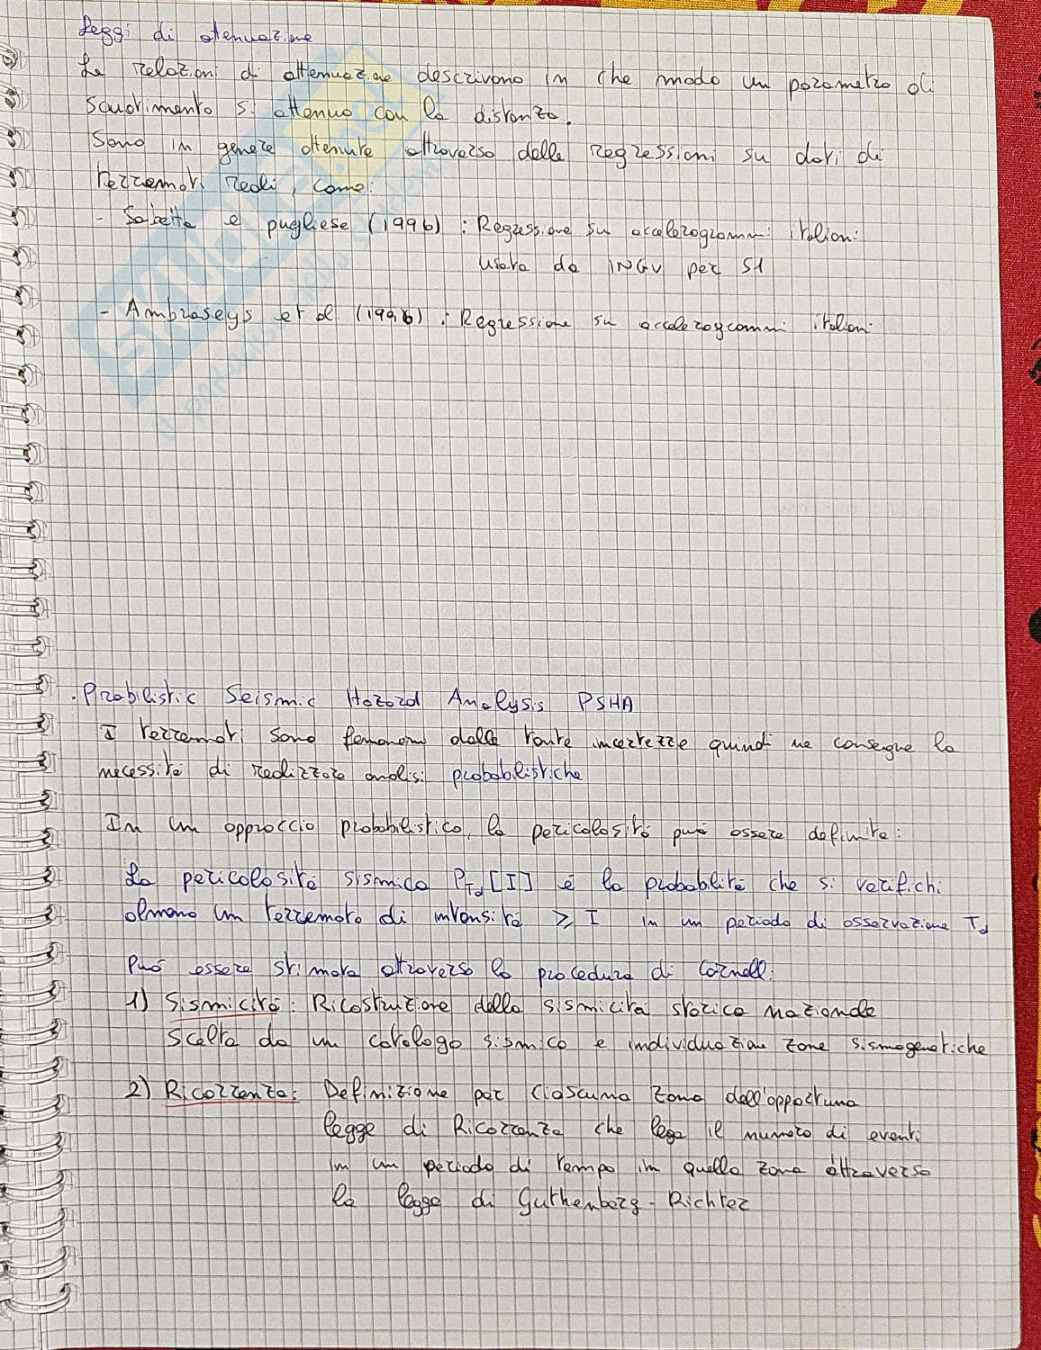 Leggi di attenuazione
Le relazioni di attenuazione descrivono in che modo un parametro di
scuotimento si attenua con la distanza.
Sono in genere ottenute attraverso delle regressioni su dati di
terremoti reali, come:
- Sabetta e pugliese (1996) : Regressione su accelerogrammi italiani
usata da INGV per S1
- Ambraseys et al (1996) : Regressione su accelerogrammi italiani
. Probilistic Seismic Hazard Analysis PSHA
I terremoti sono fenomeni dalle tante incertezze quindi ne consegue la
necessità di realizzare analisi probabilistiche
In un approccio probabilistico, la pericolosità può essere definita:
La pericolosità sismica P_Td [I] è la probabilità che si verifichi
almeno un terremoto di intensità ≥ I in un periodo di osservazione Td
Può essere stimata attraverso la procedura di Cornell:
1) Sismicità: Ricostruzione della sismicità storica nazionale
scelta da un catalogo sismico e individuazione zone sismogenetiche
2) Ricorrenza: Definizione per ciascuna zona dell'opportuna
legge di Ricorrenza che lega il numero di eventi
in un periodo di tempo in quella zona attraverso
la legge di Guthenberg - Richter